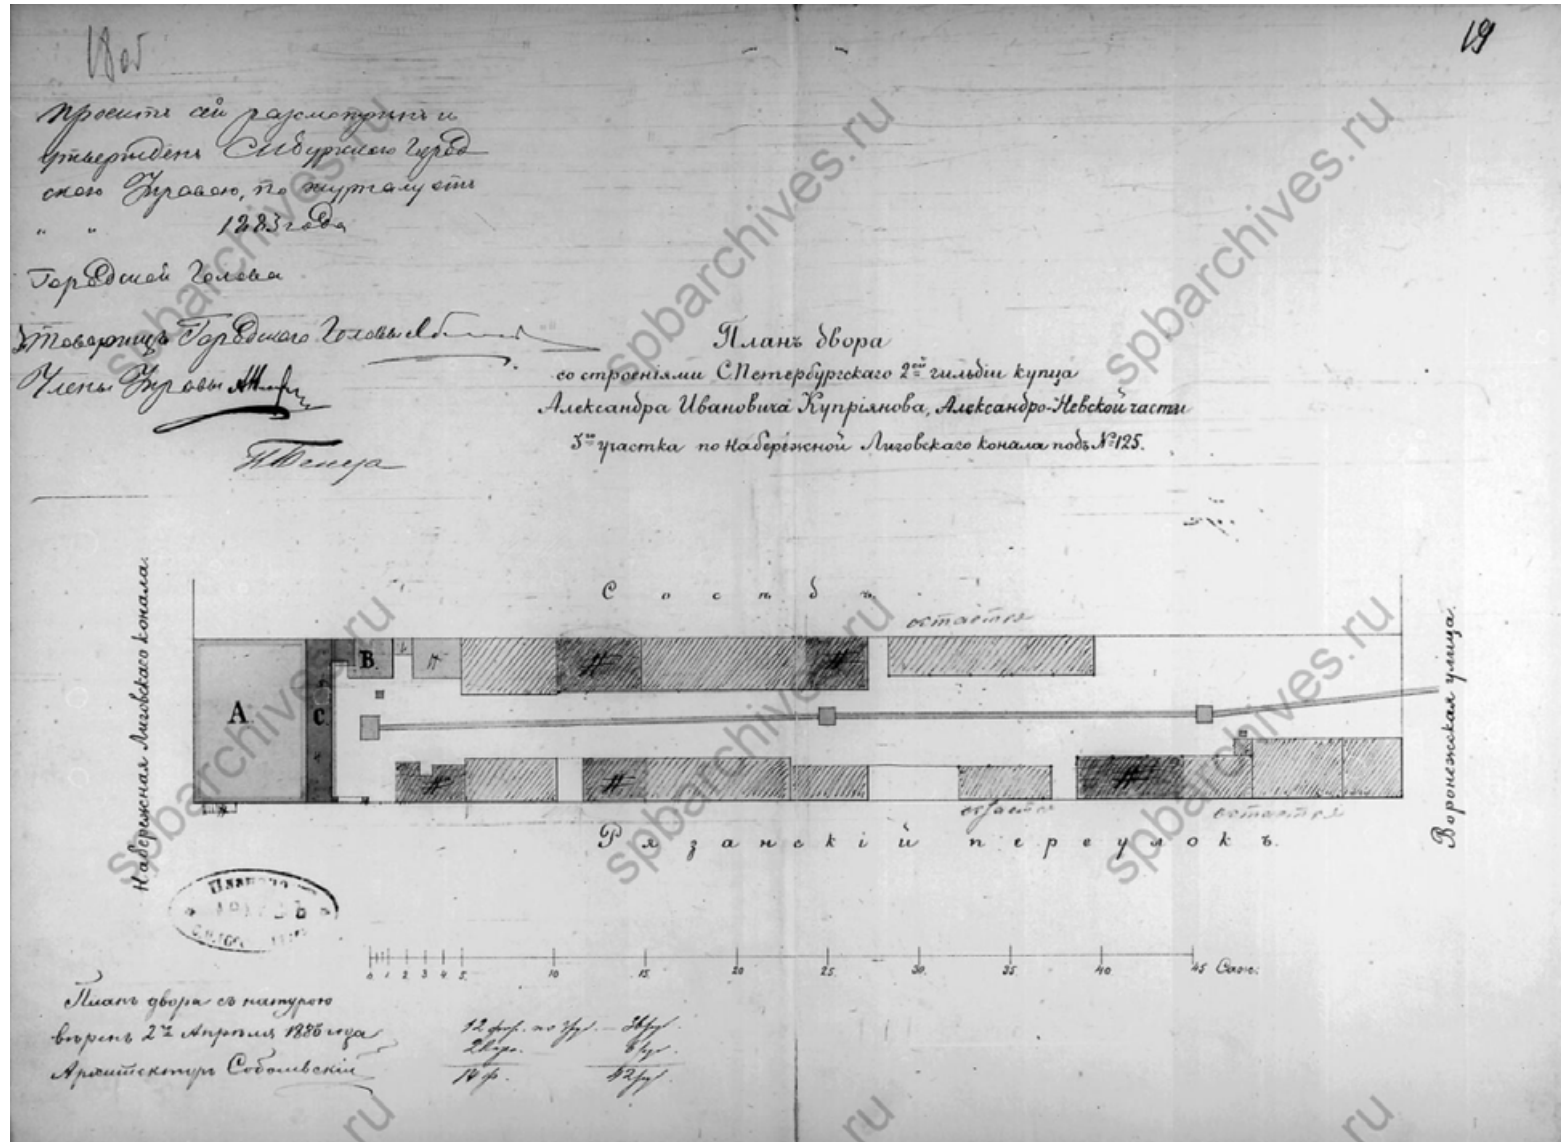 18 об
19
Проектъ сей разсмотрѣнъ и
утвержденъ С.П.бургскою Город
скою Управою, по журналу отъ
" " 1883 года
Городской Голова
Товарищъ Городскаго Головы
Члены Управы
Планъ двора
со строенiями С Петербургскаго 2ой гильдiи купца
Александра Ивановича Купрiянова, Александро-Невской части
3го участка по Набережной Лиговскаго конала подъ № 125.
Набережная Лиговскаго конала.
Сосѣдъ.
остается
A
C
B
Н
Н
Н
Н
Н
Н
остается
остается
Рязанскiй переулокъ.
Воронежская улица.
0 1 2 3 4 5 10 15 20 25 30 35 40 45 Саж.
Планъ двора съ натурою
вѣренъ 2го Апрѣля 1883 года
Архитекторъ Соболевскiй